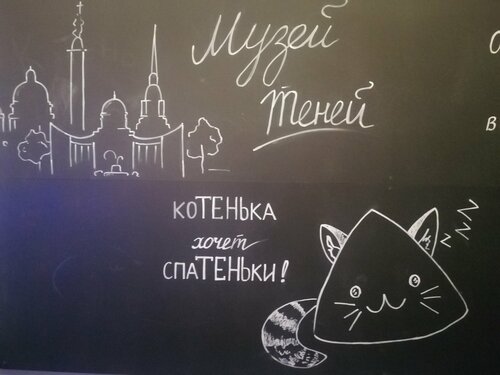 Музей
Теней
в
коТЕНЬКА
хочет
спаТЕНЬки!
z z z